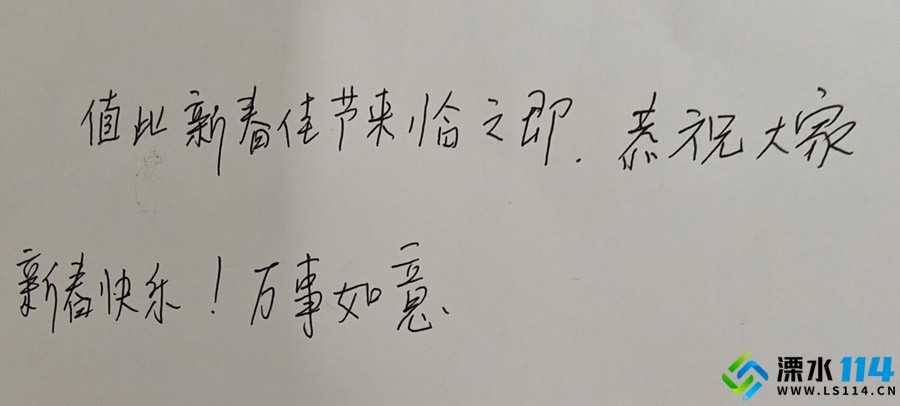 值此新春佳节来临之即.恭祝大家
新春快乐!万事如意.
溧水114
WWW.LS114.CN